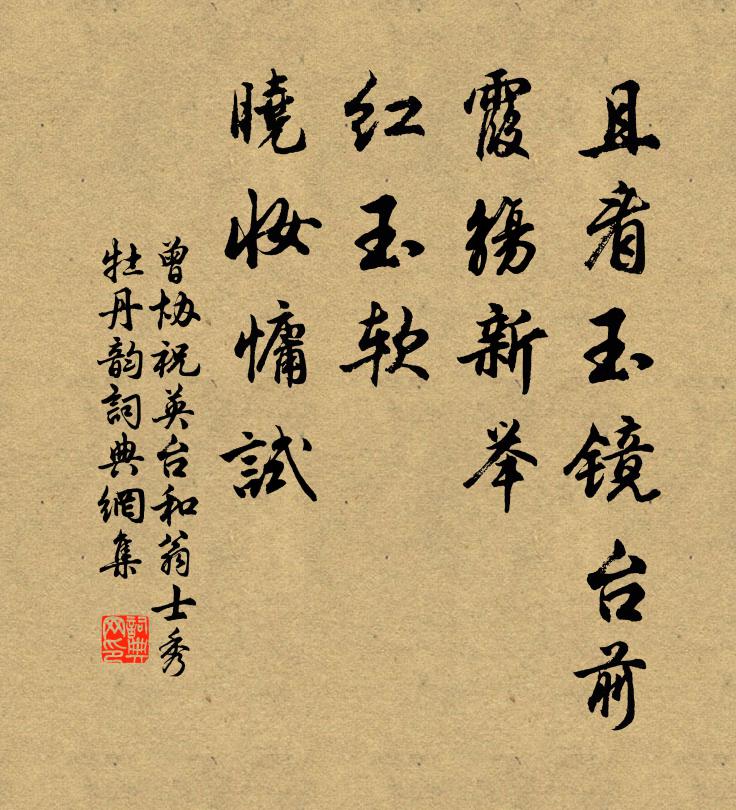 且看玉镜台前
霞觞新举
红玉软
曉妆慵試
曾协祝英台和翁士秀
牡丹韵詞典網集
詞典网印